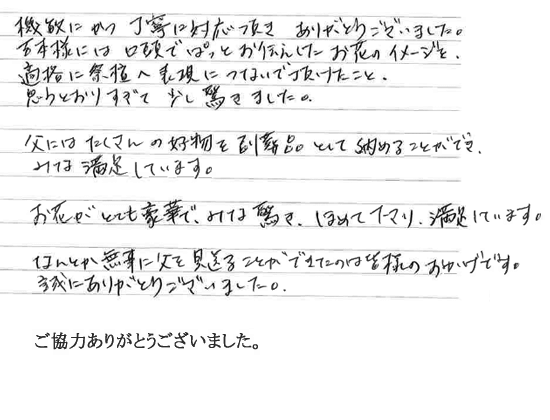 機敏にかつ丁寧に対応頂き ありがとうございました。
様には口頭でぱっとお伝えしたお花のイメージを、
適格に祭檀へ表現につないで頂けたこと、
思うとおりすぎて少し驚きました。
父にはたくさんの好物を副葬品として納めることができ、
みな満足しています。
お花がとても豪華で、みな驚き、ほめてクマリ、満足しています。
なんとか無事に父を見送ることができたのは皆様のおかげです。
誠にありがとうございました。
ご協力ありがとうございました。